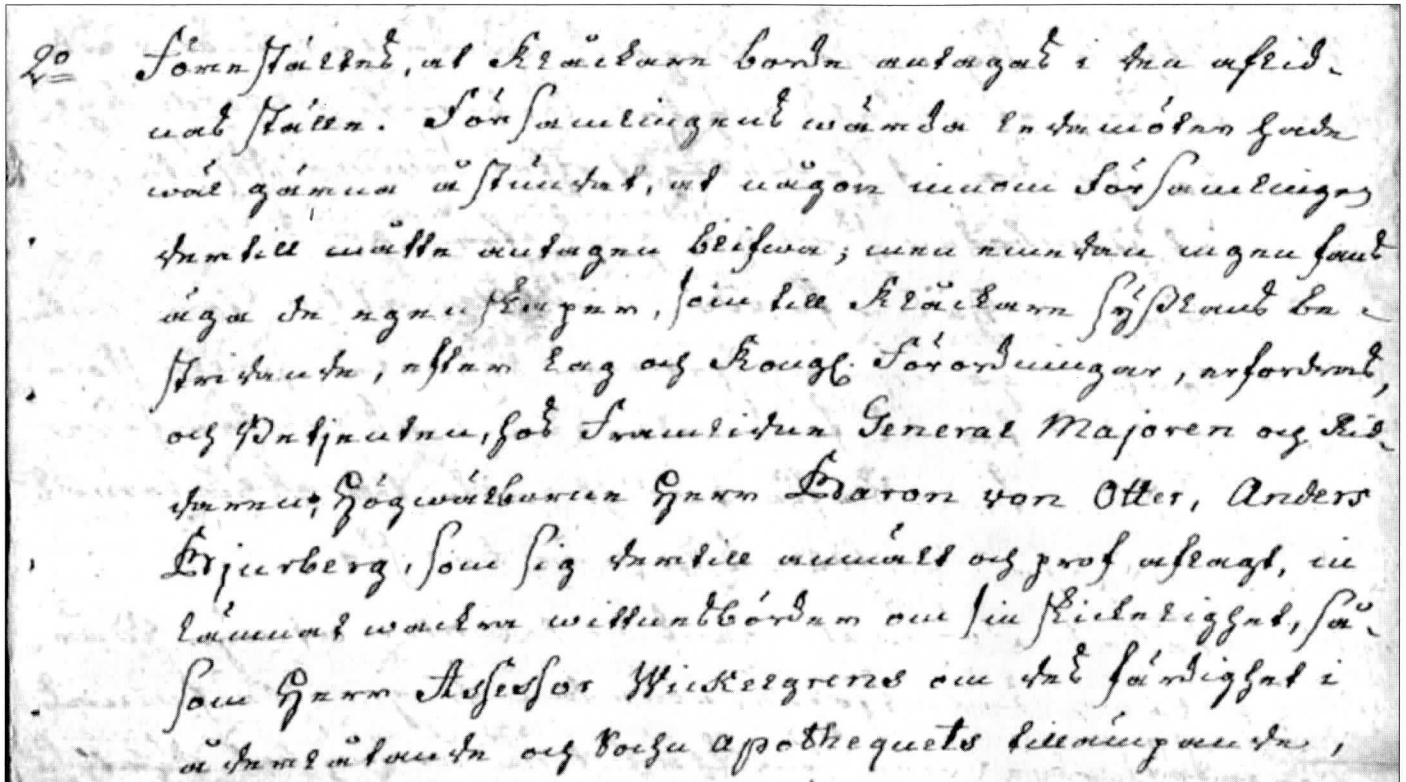 2o Förestältes, at Kläckare borde antagas i den aflid-
nas ställe. Församlingens wärda ledamöter hade
wäl gärna åstundat, at någon innom Församlingen
dertill måtte antagen blifwa; men emedan ingen fans
äga de egenskaper, som till Kläckare Sysslans be-
stridande, efter Lag och Kongl. Förordningar, erfordras,
och Betjenten, hos Framlidne General Majoren och Rid-
daren, Högwälborne Herr Baron von Otter, Anders
Bjurberg, som sig dertill anmält och prof aflagt, in
lämnat wackra wittnesbörder om sin skickelighet, så-
som Herr Assessor Wickelgrens om des färdighet i
åderlåtande och Sochn apothequets tillämpande,